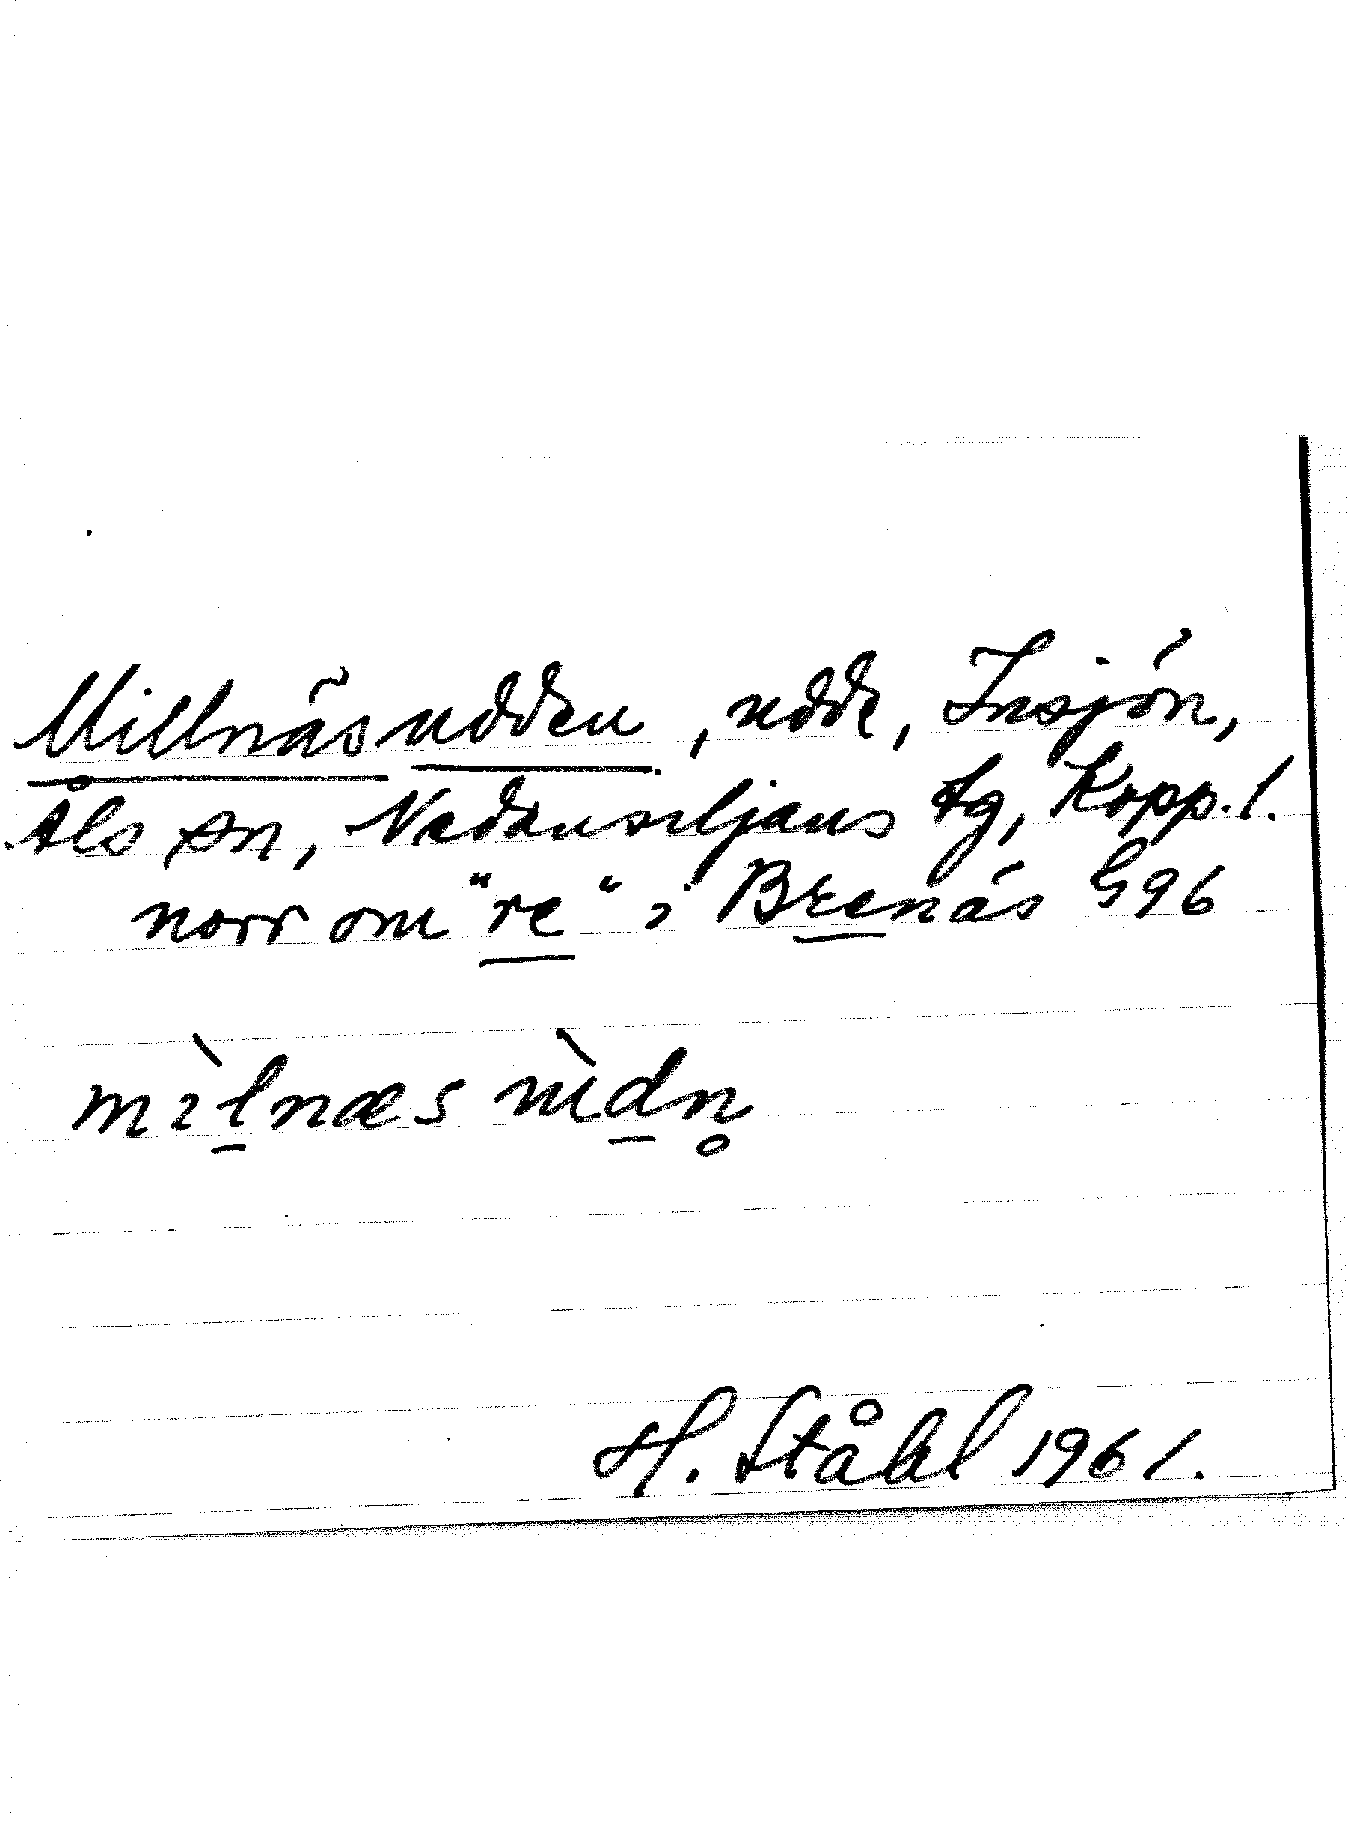 Millnäsudden, udde, Insjön,
Åls sn, Nedansiljans tg, Kopp. l.
norr om "re" i Brenäs G96
mìlnæs ùdn̥
H. Ståhl 1961.